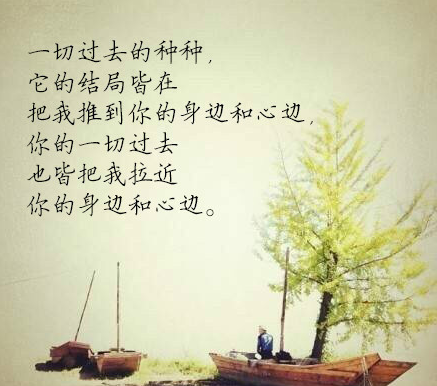 一切过去的种种,
它的结局皆在
把我推到你的身边和心边,
你的一切过去
也皆把我拉近
你的身边和心边。